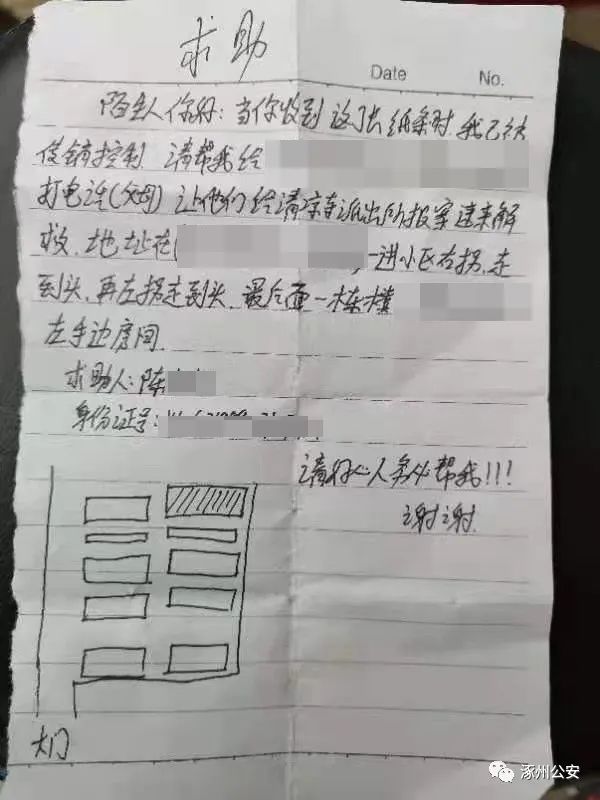 求助
Date No.
陌生人你好:当你收到这张纸条时,我已被
传销控制 请帮我给
打电话(父母) 让他们给清凉寺派出所报案速来解
救,地址在 ,一进小区右拐,走
到头,再左拐走到头,最后面一栋楼
左手边房间.
求助人:陈
身份证号:
请好心人务必帮我!!!
谢谢
大门
涿州公安